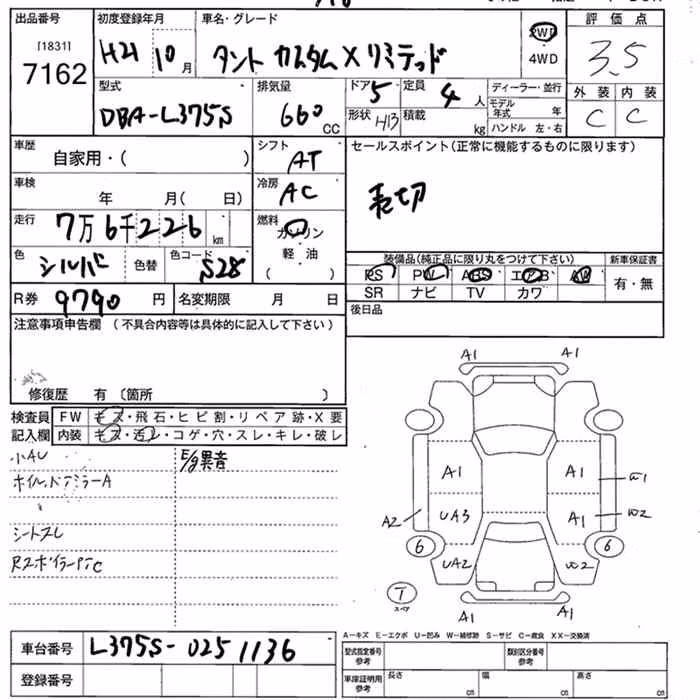 出品番号 初度登録年月 車名・グレード 評価点
[1831]
7162 H21 10月 タント カスタム X リミテッド 2WD 4WD 3.5
型式 排気量 ドア 5 定員 4人 ディーラー・並行 外装 内装
DBA-L375S 660 CC 形状 H13 積載 kg モデル年式 年 C C
ハンドル 左・右
車歴 自家用・( ) シフト AT セールスポイント(正常に機能するものに限ります)
車検 年 月( 日) 冷房 AC 売切
走行 7万6千226km 燃料 ガソリン
色 シルバー 色替 色コード S28 軽油 ( )
装備品(純正品に限り丸をつけて下さい) 新車保証書
PS PW ABS エアB AW 有・無
SR ナビ TV カワ
R券 9790円 名変期限 月 日 後日品
注意事項申告欄(不具合内容等は具体的に記入して下さい)
修復歴 有〔箇所 〕
検査員 FW キズ・飛石・ヒビ割・リペア跡・X要
記入欄 内装 キズ・汚レ・コゲ・穴・スレ・キレ・破レ
小AU E/g異音
ホイル、ドアミラーA
シートスレ
A1 A1
A1 A1 W1
A2 UA3 A1 W2
6 6
UA2
T
スペア
A1 A1
A-キズ E-エクボ U-凹み W-補修跡 S-サビ C-腐食 XX-交換済
車台番号 L375S-0251136 型式指定番号 参考 類別区分番号 参考
登録番号 車庫証明用 参考 長さ cm 幅 cm 高さ cm